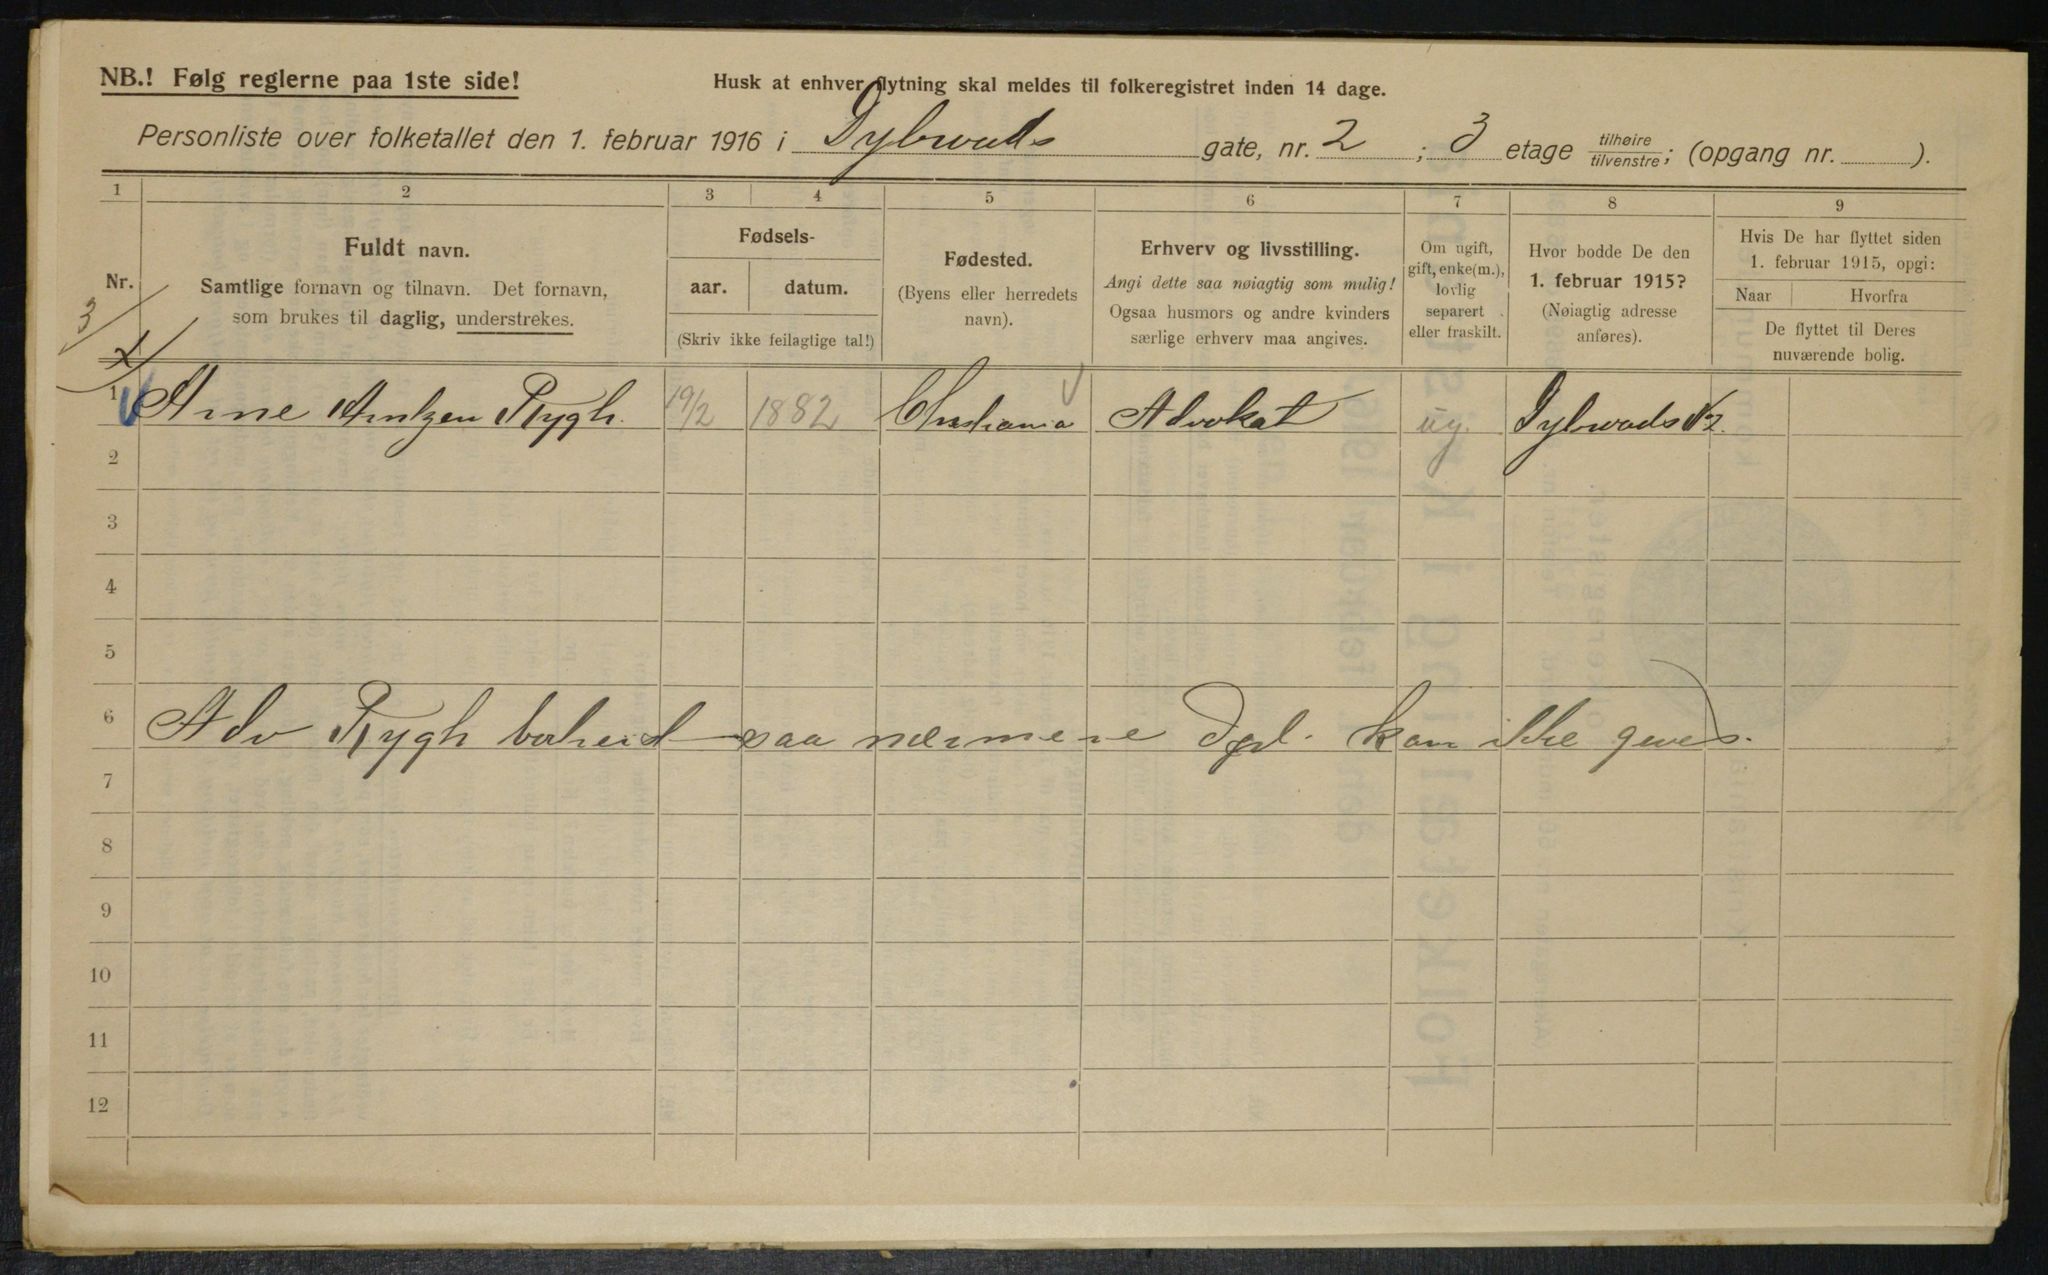 NB.! Følg reglerne paa 1ste side!
Husk at enhver flytning skal meldes til folkeregistret inden 14 dage.
Personliste over folketallet den 1. februar 1916 i Dybwads gate, nr. 2 ; 3 etage tilhøire/tilvenstre; (opgang nr. ).
1 2 3 4 5 6 7 8 9
Nr.
Fuldt navn.
Samtlige fornavn og tilnavn. Det fornavn,
som brukes til daglig, understrekes.
Fødsels-
aar. datum.
(Skriv ikke feilagtige tal!)
Fødested.
(Byens eller herredets
navn).
Erhverv og livsstilling.
Angi dette saa nøiagtig som mulig!
Ogsaa husmors og andre kvinders
særlige erhverv maa angives.
Om ugift,
gift, enke(m.),
lovlig
separert
eller fraskilt.
Hvor bodde De den
1. februar 1915?
(Nøiagtig adresse
anføres).
Hvis De har flyttet siden
1. februar 1915, opgi:
Naar Hvorfra
De flyttet til Deres
nuværende bolig.
3
1 Arne Arntzen Rygh. 19/2 1882 Christiania Advokat ug. Dybwads 2.
2
3
4
5
6 Adv Rygh bortreist saa nærmere Opl. kan ikke gives.
7
8
9
10
11
12